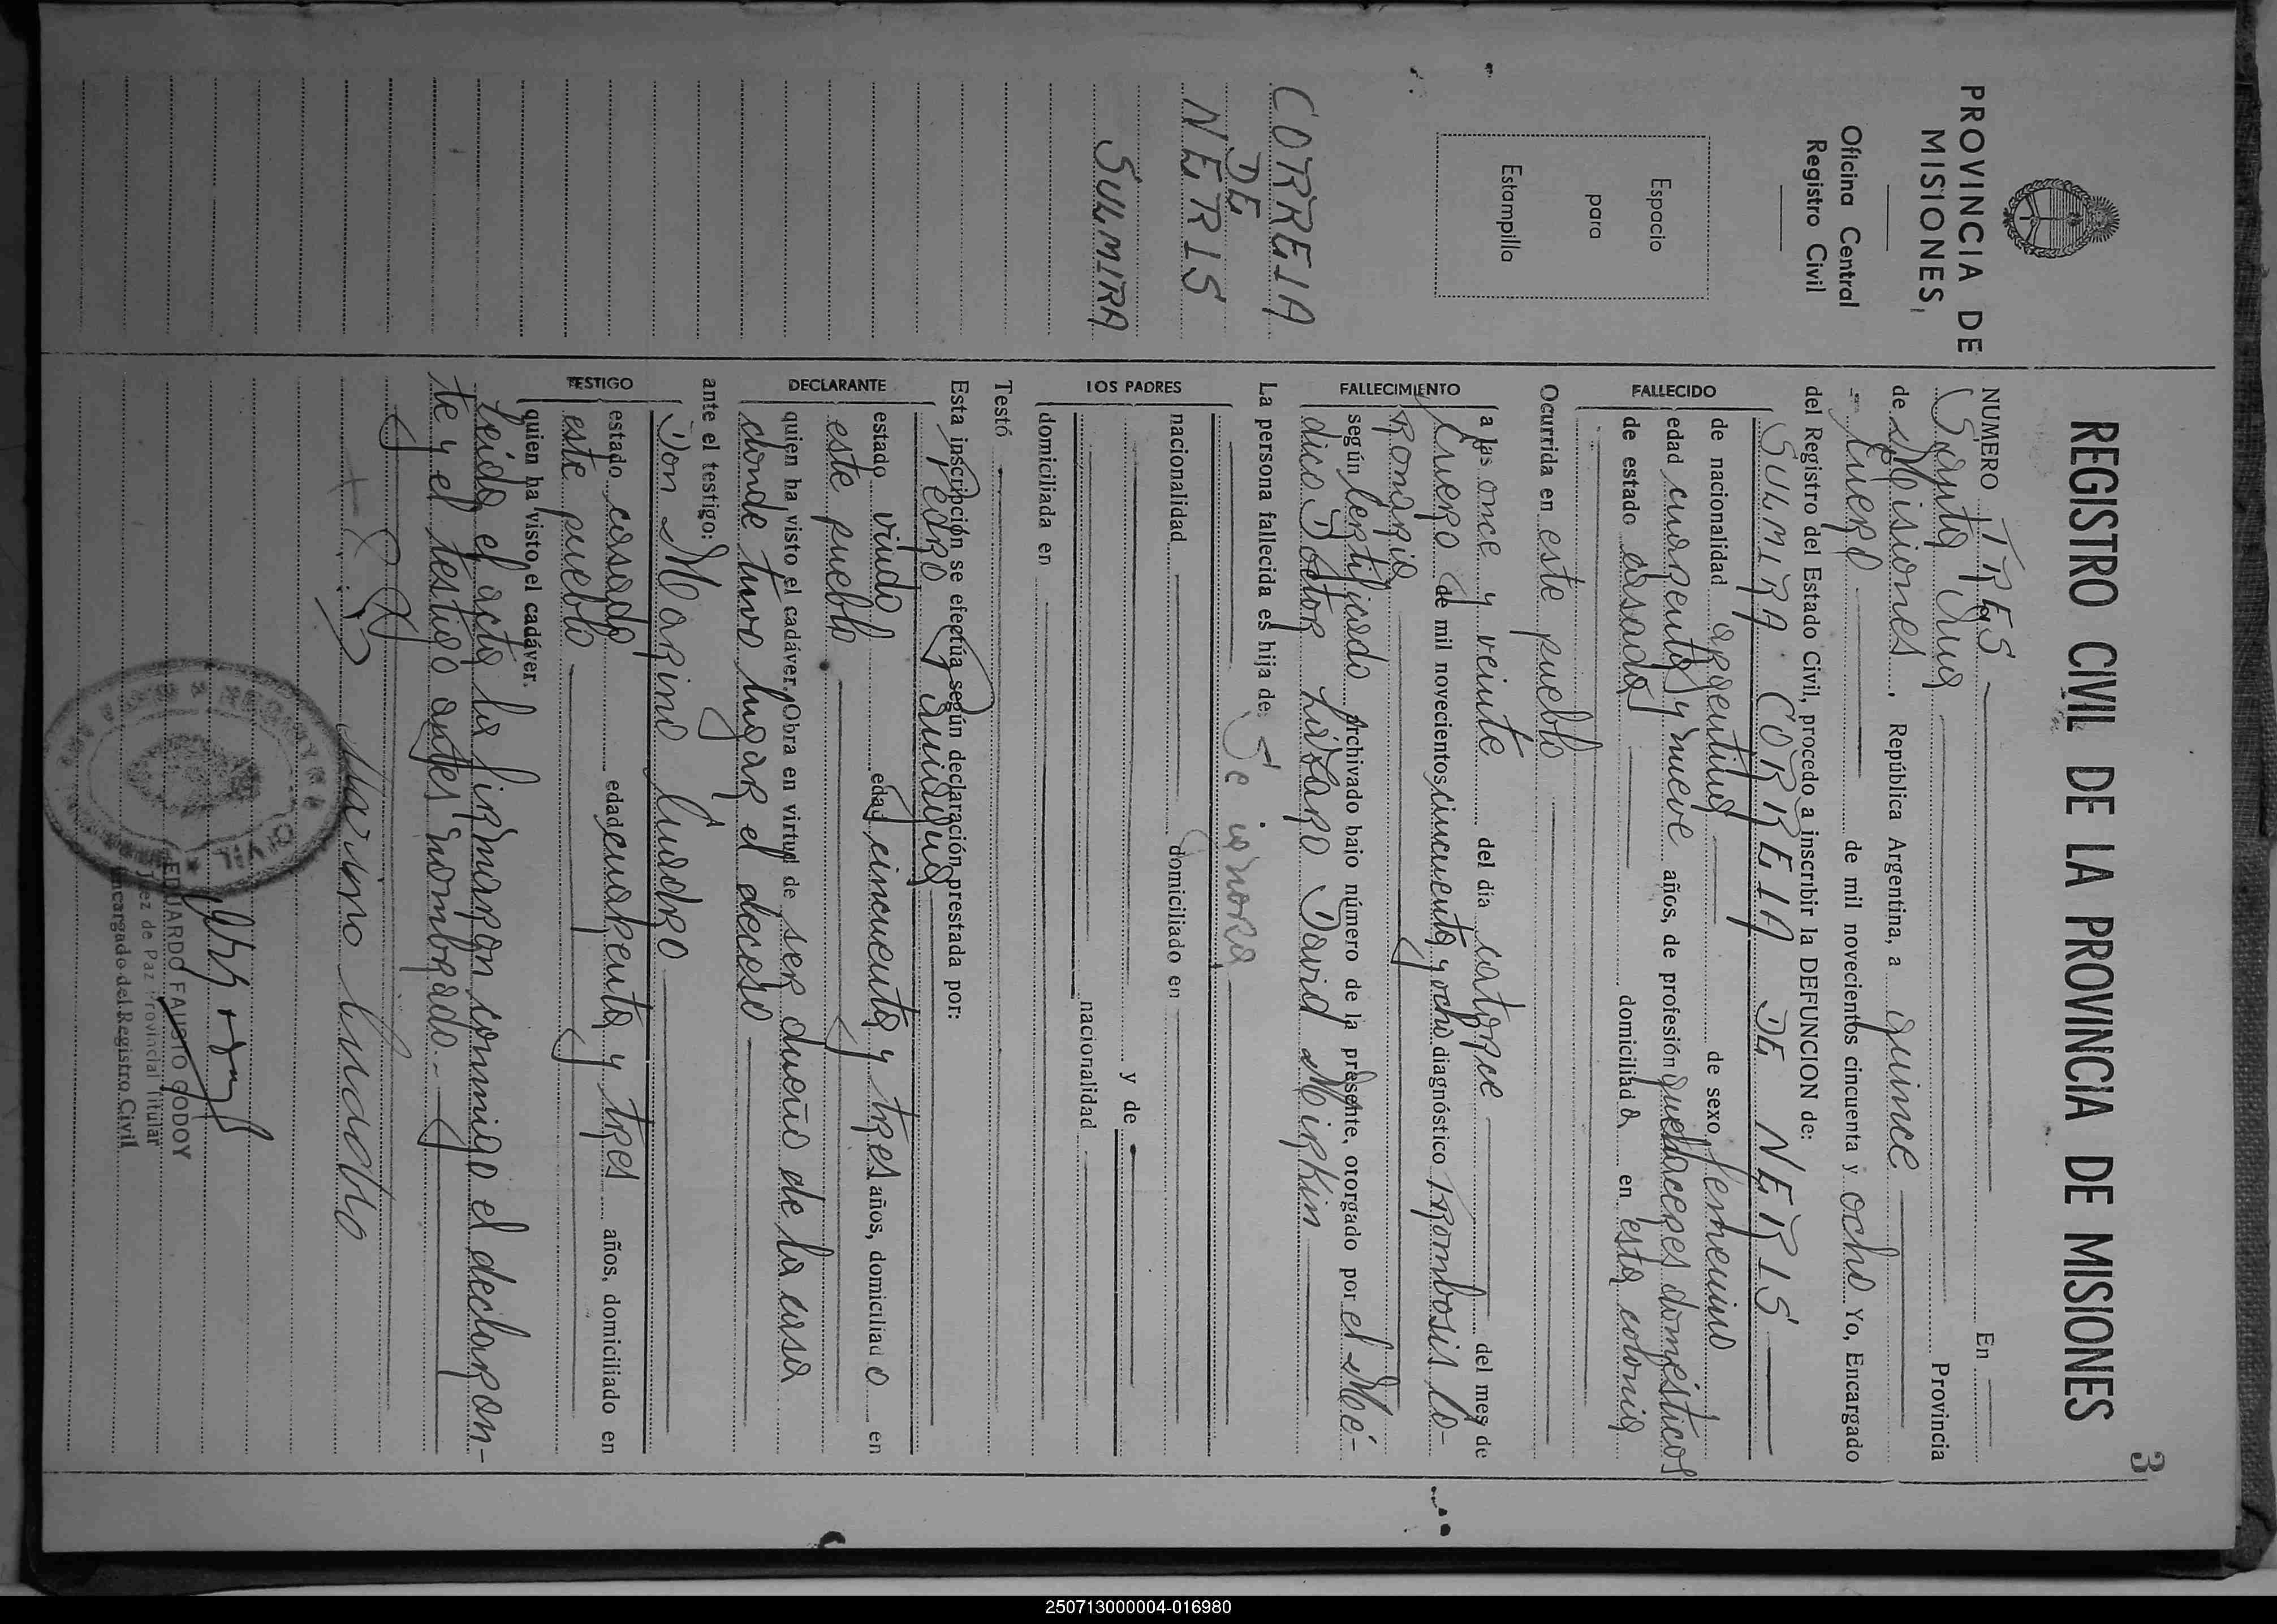 3
REGISTRO CIVIL DE LA PROVINCIA DE MISIONES
PROVINCIA DE
MISIONES
Oficina Central
Registro Civil
Espacio
para
Estampilla
CORREIA
DE
NERIS
SULMIRA
NUMERO TRES En
Santa Ana Provincia
de Misiones, República Argentina, a quince
Enero de mil novecientos cincuenta y ocho Yo, Encargado
del Registro del Estado Civil, procedo a inscribir la DEFUNCION de:
FALLECIDO
SULMIRA CORREIA DE NERIS
de nacionalidad argentina de sexo femenino
edad cuarenta y nueve años, de profesión quehaceres domésticos
de estado casada domiciliada en esta colonia
Ocurrida en este pueblo
FALLECIMIENTO
a las once y veinte del día catorce del mes de
Enero de mil novecientos cincuenta y ocho diagnóstico trombosis co-
ronaria
según certificado archivado bajo número de la presente, otorgado por el Mé-
dico Doctor Lázaro David Mirkin
La persona fallecida es hija de: Se ignora
LOS PADRES
nacionalidad domiciliado en
y de
nacionalidad
domiciliada en
Testó
Esta inscripción se efectúa según declaración prestada por:
DECLARANTE
Pedro
estado viudo edad cincuenta y tres años, domiciliado en
este pueblo
quien ha visto el cadáver. Obra en virtud de ser dueño de la casa
donde tuvo lugar el deceso
ante el testigo:
TESTIGO
Don Marino Cuadro
estado casado edad cuarenta y tres años, domiciliado en
este pueblo
quien ha visto el cadáver.
Leída el acta la firmaron conmigo el declaran-
te y el testigo antes nombrado.-
Marino Cuadro
REGISTRO CIVIL
EDUARDO FAUSTO GODOY
Juez de Paz Provincial Titular
Encargado del Registro Civil
250713000004-016980